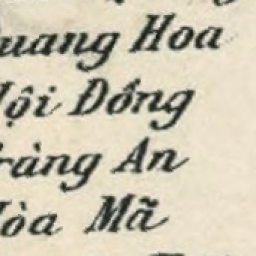 uang Hoa
ội Đồng
ràng An
òa Mã